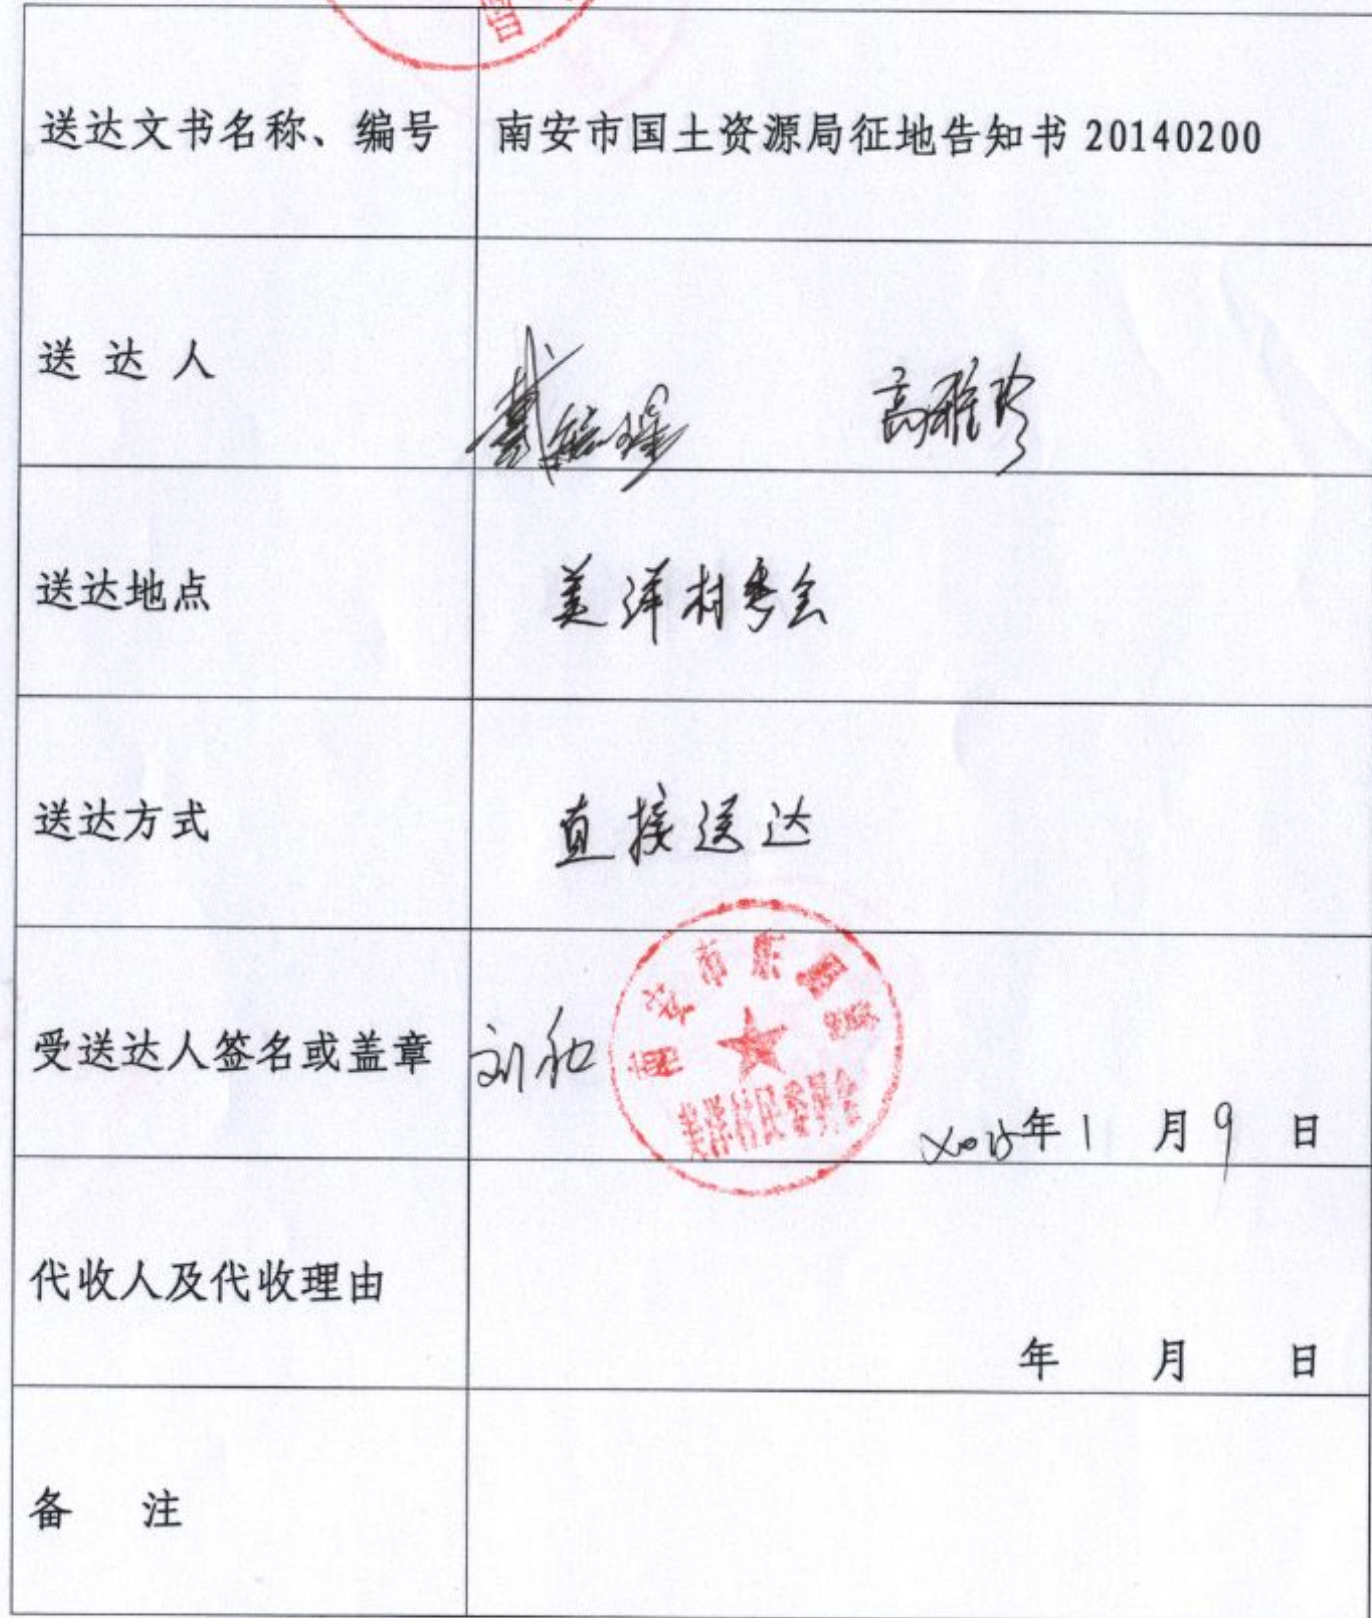 送达文书名称、编号 南安市国土资源局征地告知书 20140200
送 达 人 高雅珍
送达地点 美洋村委会
送达方式 直接送达
南安市东田镇
受送达人签名或盖章 刘和
美洋村民委员会
2015年1月9日
代收人及代收理由
年 月 日
备 注